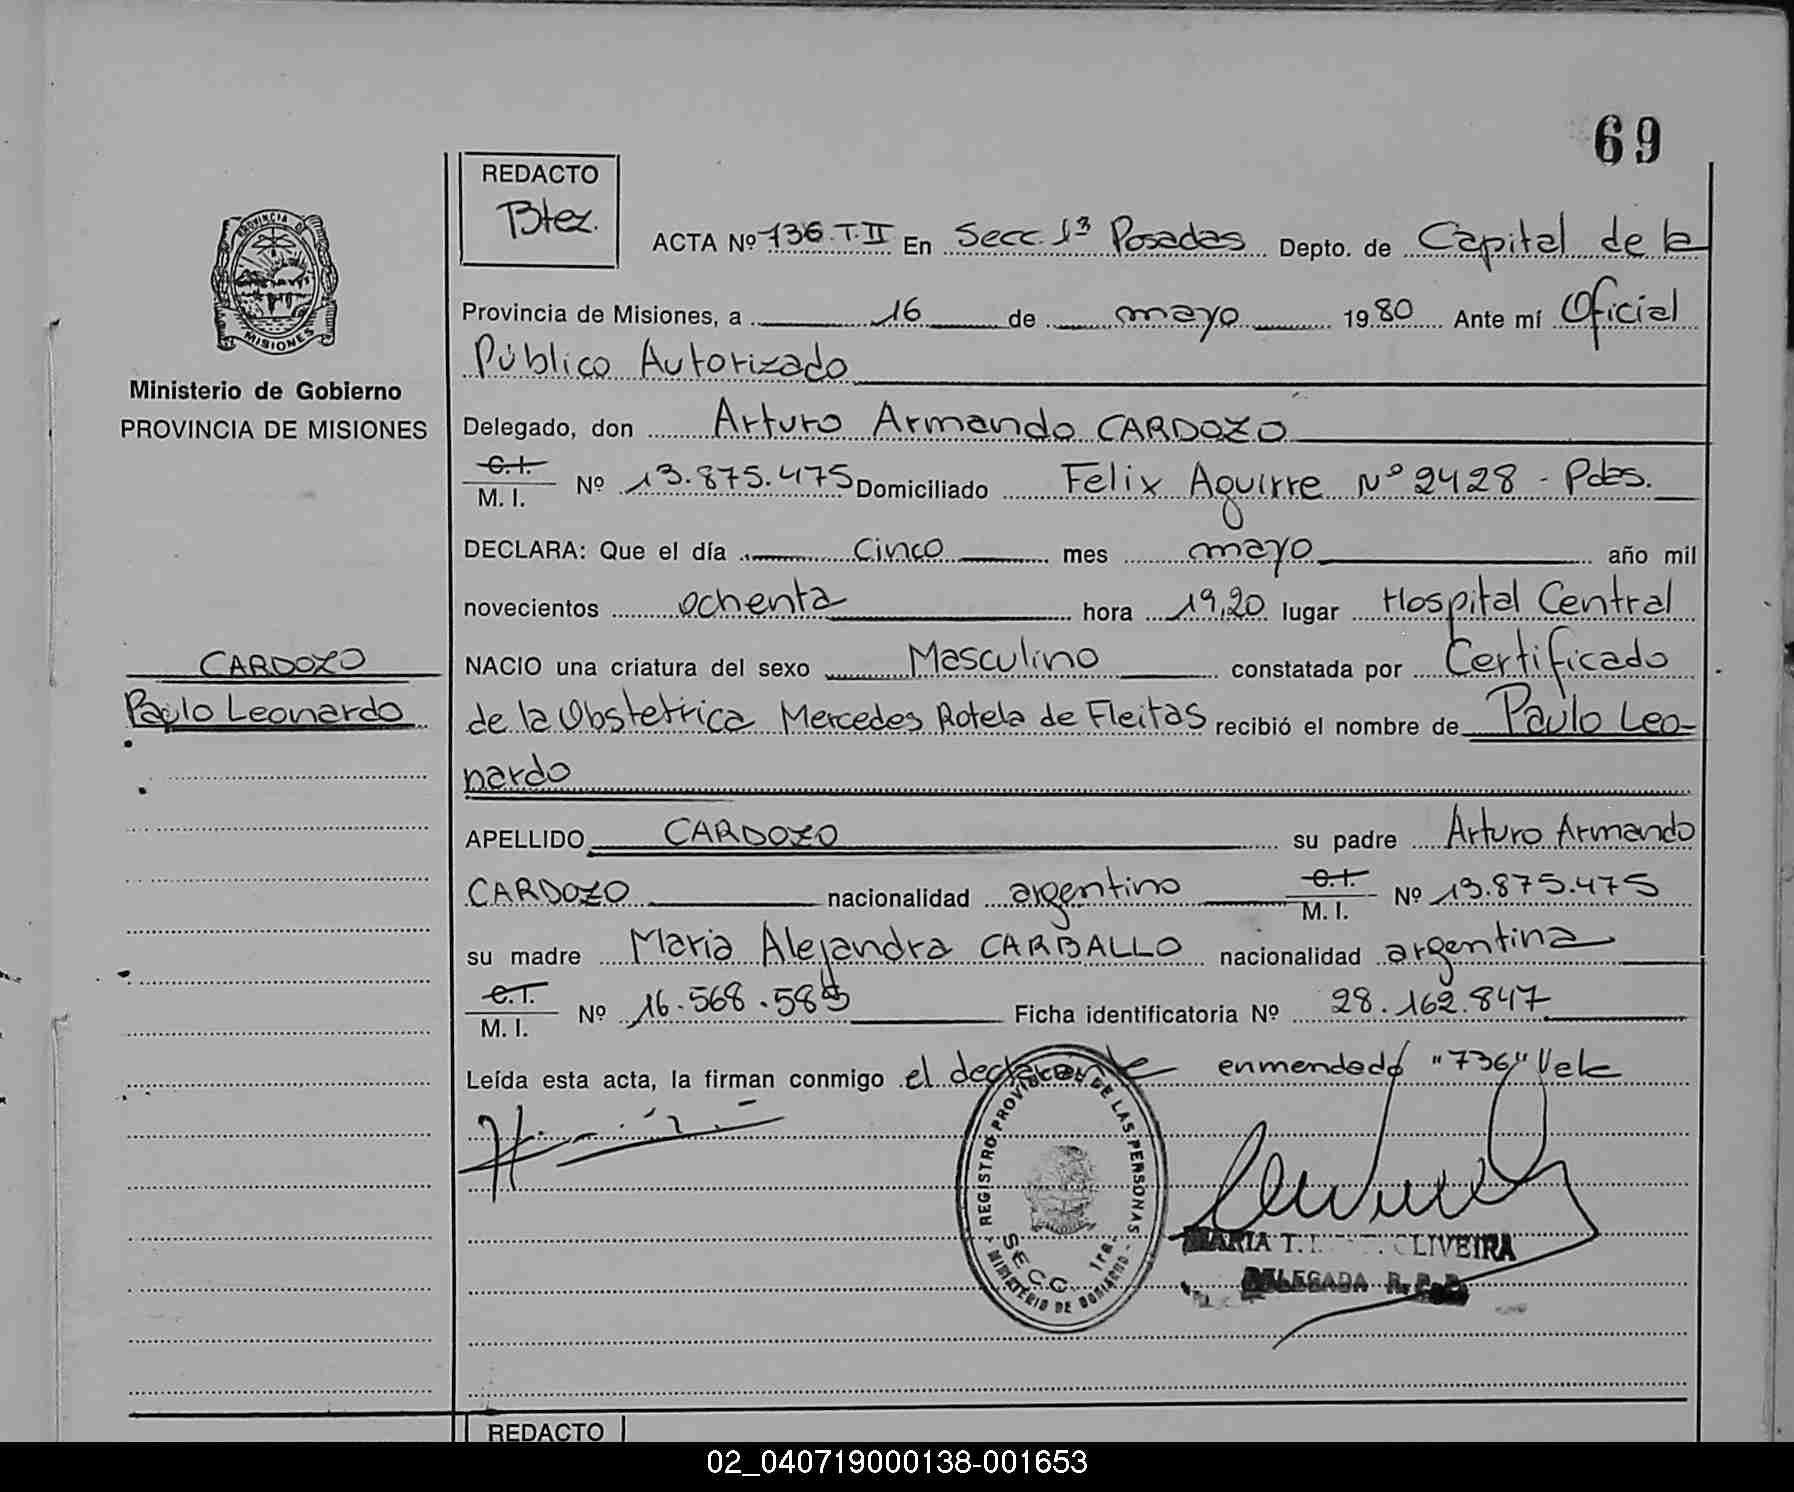 69
REDACTO
Btez.
ACTA Nº 736 T.II En Secc. 1ª Posadas Depto. de Capital de la
PROVINCIA DE
MISIONES
Provincia de Misiones, a 16 de mayo 1980 Ante mí Oficial
Público Autorizado
Ministerio de Gobierno
PROVINCIA DE MISIONES
Delegado, don Arturo Armando CARDOZO
C.I.
M. I. Nº 13.875.475 Domiciliado Felix Aguirre Nº 2428 - Pdas.
DECLARA: Que el día cinco mes mayo año mil
novecientos ochenta hora 19,20 lugar Hospital Central
NACIO una criatura del sexo Masculino constatada por Certificado
CARDOZO
Paulo Leonardo
de la Obstetrica Mercedes Rotela de Fleitas recibió el nombre de Paulo Leo-
nardo
APELLIDO CARDOZO su padre Arturo Armando
CARDOZO nacionalidad argentino C.I. M. I. Nº 13.875.475
su madre Maria Alejandra CARBALLO nacionalidad argentina
C.I.
M. I. Nº 16.568.585 Ficha identificatoria Nº 28.162.847
Leída esta acta, la firman conmigo el declarante enmendado "736" Vale
REGISTRO PROVINCIAL DE LAS PERSONAS
SECC. 1ra.
MINISTERIO DE GOBIERNO
MARIA T. OLIVEIRA
DELEGADA R. P. P.
REDACTO
02_040719000138-001653